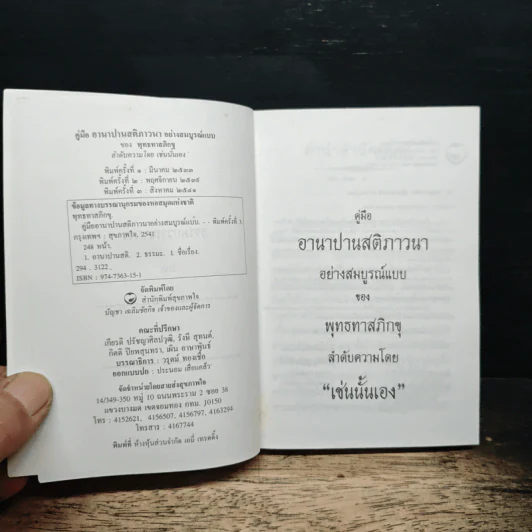 คู่มือ อานาปานสติภาวนา อย่างสมบูรณ์แบบ
ของ พุทธทาสภิกขุ
ลำดับความโดย เช่นนั้นเอง
พิมพ์ครั้งที่ ๑ : มีนาคม ๒๕๓๓
พิมพ์ครั้งที่ ๒ : พฤศจิกายน
พิมพ์ครั้งที่ ๓ : สิงหาคม ๒๕๔๑
ข้อมูลทางบรรณานุกรมของหอสมุดแห่งชาติ
พุทธทาสภิกขุ.
คู่มืออานาปานสติภาวนาอย่างสมบูรณ์แบบ. - - พิมพ์ครั้งที่ 3.
กรุงเทพฯ : สุขภาพใจ, 2541
248 หน้า.
1. อานาปานสติ. 2. ธรรมะ. I ชื่อเรื่อง.
294 . 3122
ISBN : 974-7363-15-1
จัดพิมพ์โดย
สำนักพิมพ์สุขภาพใจ
บัญชา เฉลิมชัยกิจ เจ้าของและผู้จัดการ
คณะที่ปรึกษา
เกียรติ ปรัชญาศิลปวุฒิ, รังษี สุทนต์,
กิตติ ปิยพสุนทรา, เผิน อาษาพันธ์
บรรณาธิการ : วรุตม์ ทองเชื้อ
ออกแบบปก : ประนอม เสือแกล้ว
จัดจำหน่ายโดยสายส่งสุขภาพใจ
14/349-350 หมู่ 10 ถนนพระราม 2 ซอย 38
แขวงบางมด เขตจอมทอง กทม. 10150
โทร : 4152621, 4156507, 4156797, 4163294
โทรสาร : 4167744
พิมพ์ที่ ห้างหุ้นส่วนจำกัด เอมี่ เทรดดิ้ง
คู่มือ
อานาปานสติภาวนา
อย่างสมบูรณ์แบบ
ของ
พุทธทาสภิกขุ
ลำดับความโดย
“เช่นนั้นเอง”